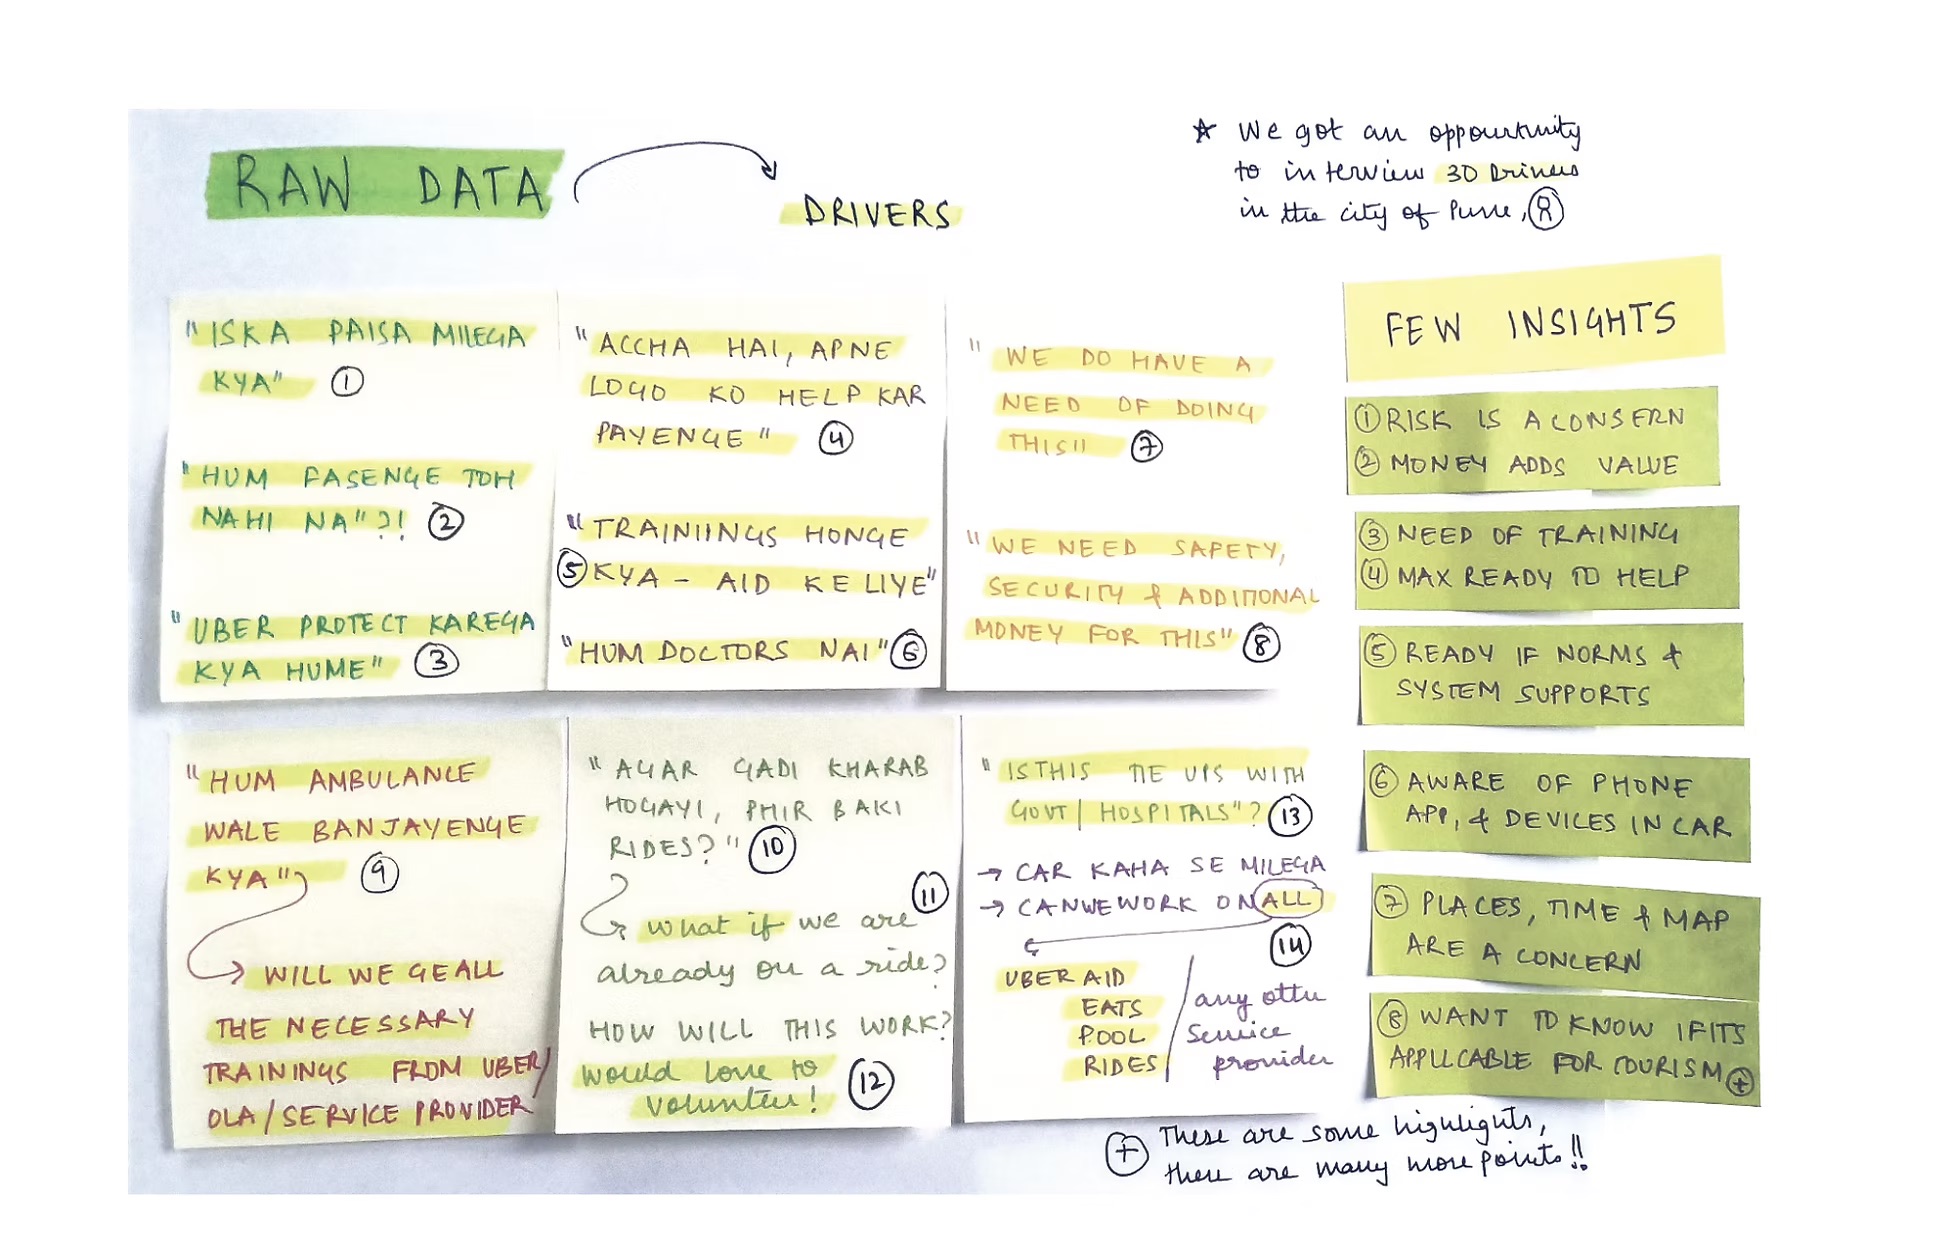 RAW DATA
DRIVERS
★ We got an oppourtunity
to interview 30 Drivers
in the city of Pune,
"ISKA PAISA MILEGA
KYA" ①
"HUM FASENGE TOH
NAHI NA"?! ②
"UBER PROTECT KAREGA
KYA HUME" ③
"ACCHA HAI, APNE
LOGO KO HELP KAR
PAYENGE" ④
"TRAINIINGS HONGE
⑤ KYA - AID KE LIYE"
"HUM DOCTORS NAI" ⑥
"WE DO HAVE A
NEED OF DOING
THIS" ⑦
"WE NEED SAFETY,
SECURITY & ADDITIONAL
MONEY FOR THIS" ⑧
"HUM AMBULANCE
WALE BANJAYENGE
KYA" ⑨
→ WILL WE GEALL
THE NECESSARY
TRAININGS FROM UBER/
OLA/SERVICE PROVIDER
"AGAR GADI KHARAB
HOGAYI, PHIR BAKI
RIDES?" ⑩
⑪
→ What if we are
already on a ride?
HOW WILL THIS WORK?
Would love to
volunteer! ⑫
"IS THIS TIE UPS WITH
GOVT/HOSPITALS"? ⑬
→ CAR KAHA SE MILEGA
→ CAN WE WORK ON ALL
⑭
UBER AID
EATS
POOL
RIDES
/ any other
service
provider
FEW INSIGHTS
① RISK IS A CONSERN
② MONEY ADDS VALUE
③ NEED OF TRAINING
④ MAX READY TO HELP
⑤ READY IF NORMS &
SYSTEM SUPPORTS
⑥ AWARE OF PHONE
APP, & DEVICES IN CAR
⑦ PLACES, TIME & MAP
ARE A CONCERN
⑧ WANT TO KNOW IF ITS
APPLICABLE FOR TOURISM ⊕
⊕ These are some highlights,
there are many more points!!